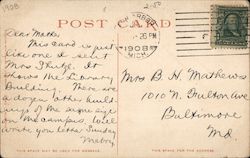 1908
POST CARD
Dear Mother,
This card is just
like one I sent
Mrs. It
shows the Library
Building. There are
a dozen other build-
ings of the same size
on the campus. Will
write you letter Sunday
1908
MICH.
Mrs B. H. Mathews
1010 N. Fulton Ave
Baltimore
Md.
THIS SPACE MAY BE USED FOR MESSAGE.
THIS SPACE FOR ADDRESS